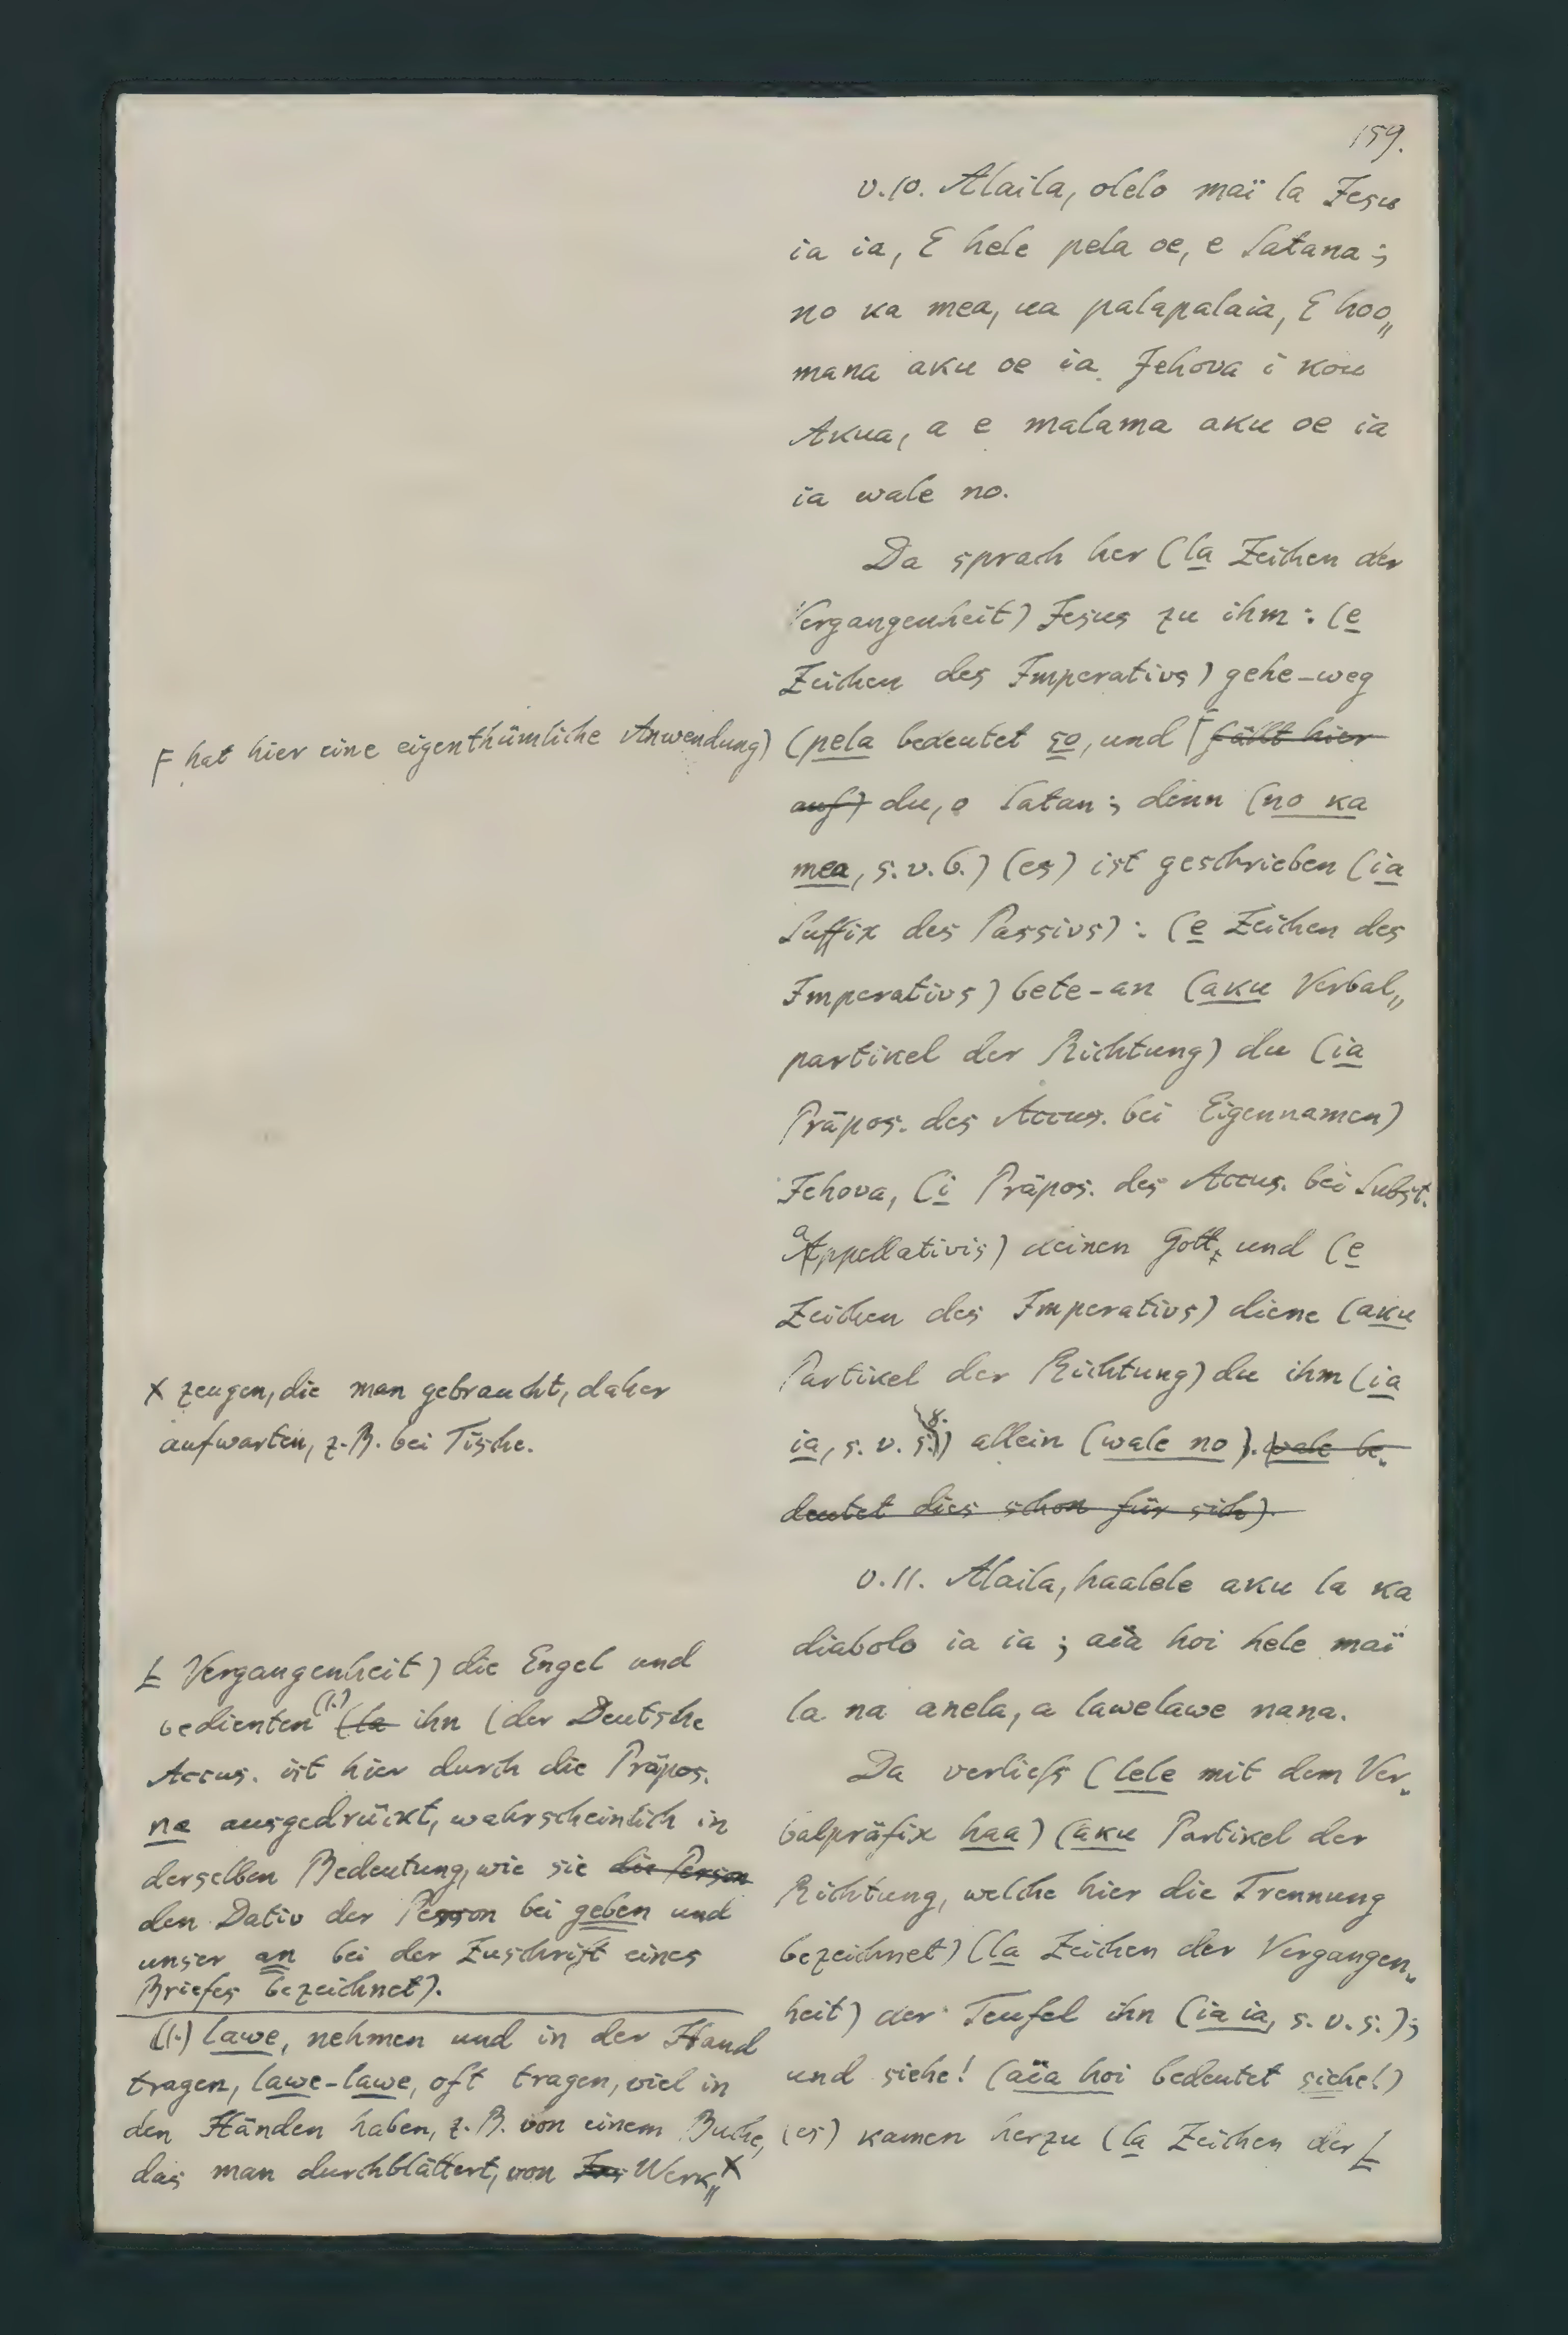 159.
v. 10. Alaila, olelo maï la Jesu
ia ia, E hele pela oe, e Satana;
no ka mea, ua palapalaia, E hoo„
mana aku oe ia Jehova i kou
Akua, a e malama aku oe ia
ia wale no.
Da sprach her (la Zeichen der
Vergangenheit) Jesus zu ihm: (e
Zeichen des Imperativs) gehe-weg
(pela bedeutet so, und ⌈ fällt hier
auf) du, o Satan; denn (no ka
mea, s. v. 6.) (es) ist geschrieben (ia
Suffix des Passivs): (e Zeichen des
Imperativs) bete-an (aku Verbal„
partikel der Richtung) du (ia
Präpos. des Accus. bei Eigennamen)
Jehova, (i Präpos. des Accus. bei Subst.
Appellativis) deinen Gott, und (e
Zeichen des Imperativs) diene (aku
Partikel der Richtung) du ihm (ia
ia, s. v. 8.) allein (wale no). (wale be„
deutet dies schon für sich).
v. 11. Alaila, haalele aku la ka
diabolo ia ia; aïa hoi hele maï
la na anela, a lawelawe nana.
Da verliefs (lele mit dem Ver„
balpräfix haa) (aku Partikel der
Richtung, welche hier die Trennung
bezeichnet) (la Zeichen der Vergangen„
heit) der Teufel ihn (ia ia, s. v. s.);
und siehe! (aïa hoi bedeutet siehe!)
(es) kamen herzu (la Zeichen der L
F hat hier eine eigenthümliche Anwendung)
X zeugen, die man gebraucht, daher
aufwarten, z. B. bei Tische.
L Vergangenheit) die Engel und
bedienten (1.) (la ihn (der Deutsche
Accus. ist hier durch die Präpos.
na ausgedrückt, wahrscheinlich in
derselben Bedeutung, wie sie die Person
den Dativ der Person bei geben und
unser an bei der Zuschrift eines
Briefes bezeichnet).
(1.) lawe, nehmen und in der Hand
tragen, lawe-lawe, oft tragen, viel in
den Händen haben, z. B. von einem Buche,
das man durchblättert, von Werk„ X